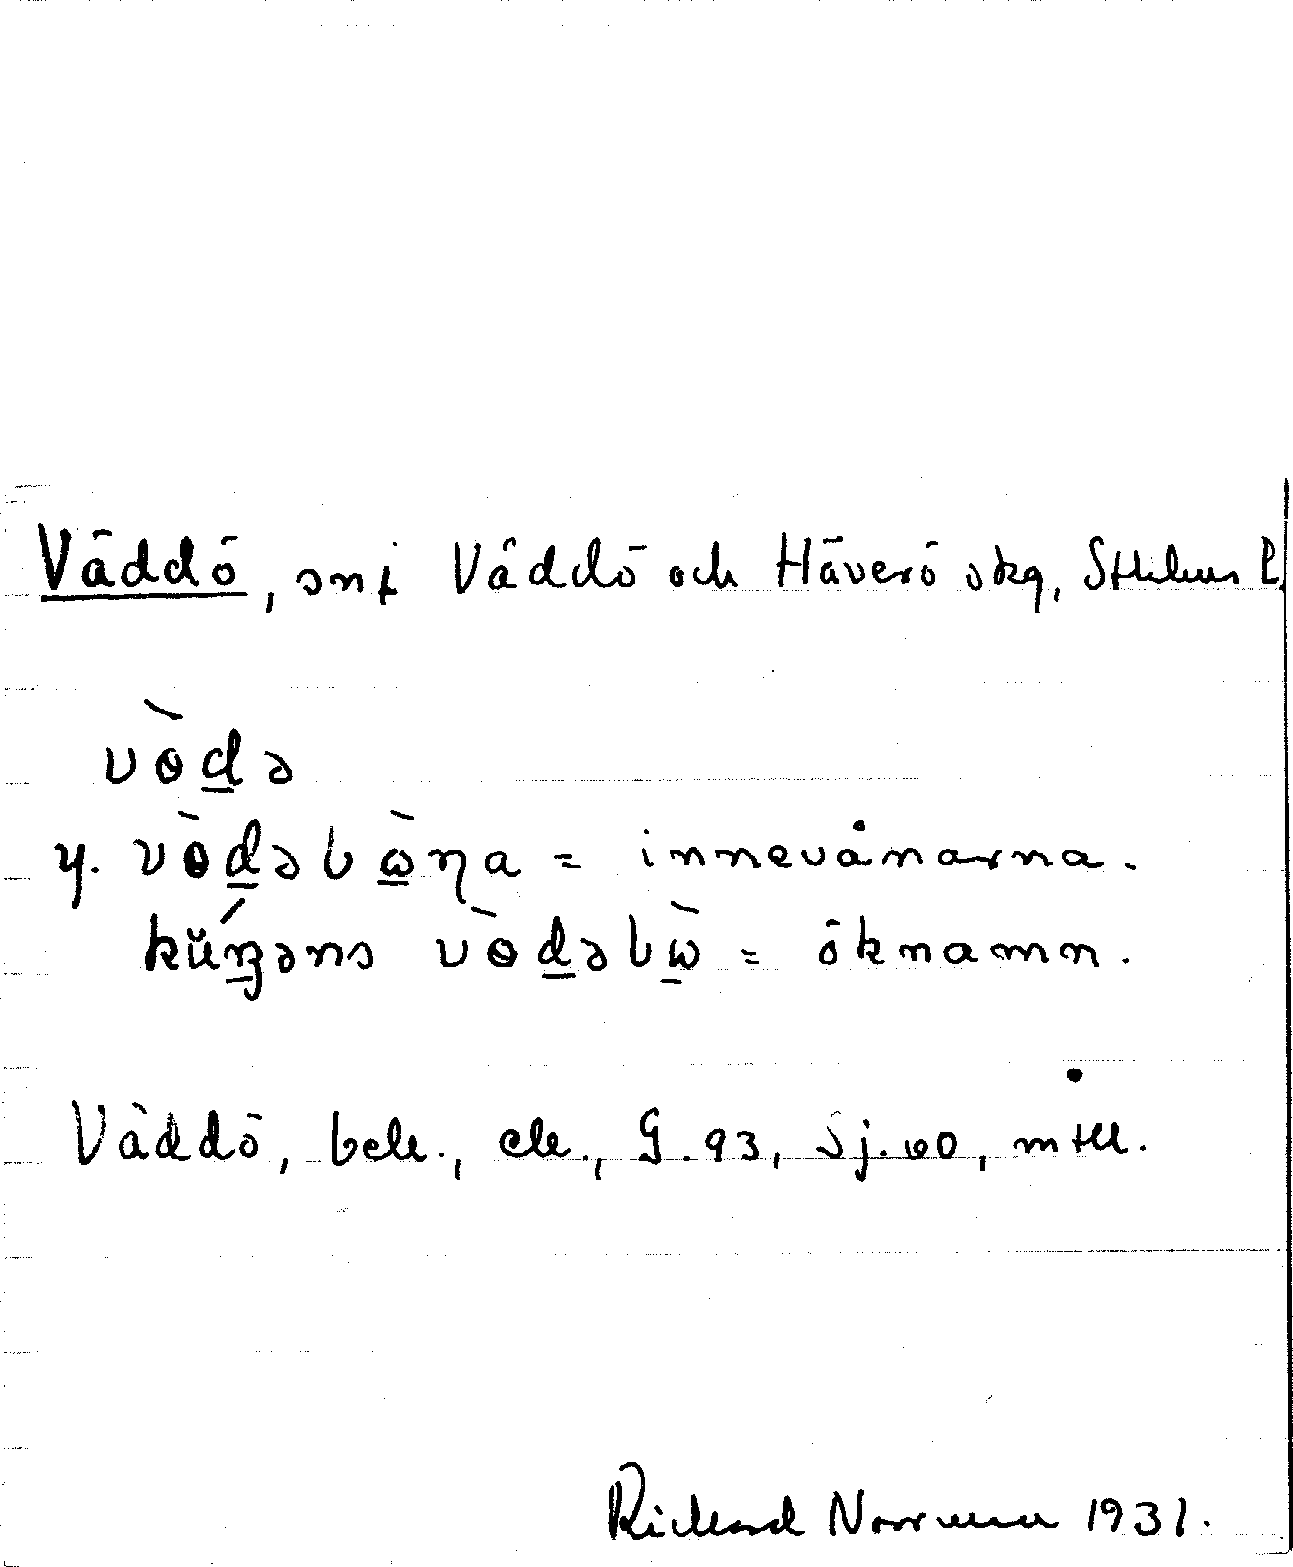 Väddö, snt Väddö och Häverö skg, Sthlms l.
vòdə
y. vòdəbὼƞa = innevånarna.
kŭ́ngəns vòdəbὼ = öknamn.
Väddö, bek., ek., G. 93, Sj. 60, mtll.
Rickard Norrman 1931.